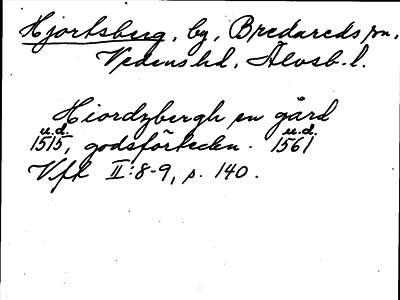 Hjortsberg, by, Bredareds sn,
Vedens hd, Älvsb. l.
Hiordzbergh en gård
u.d. u.d.
1515, godsförteckn. 1561
Vfk II:8-9, s. 140.